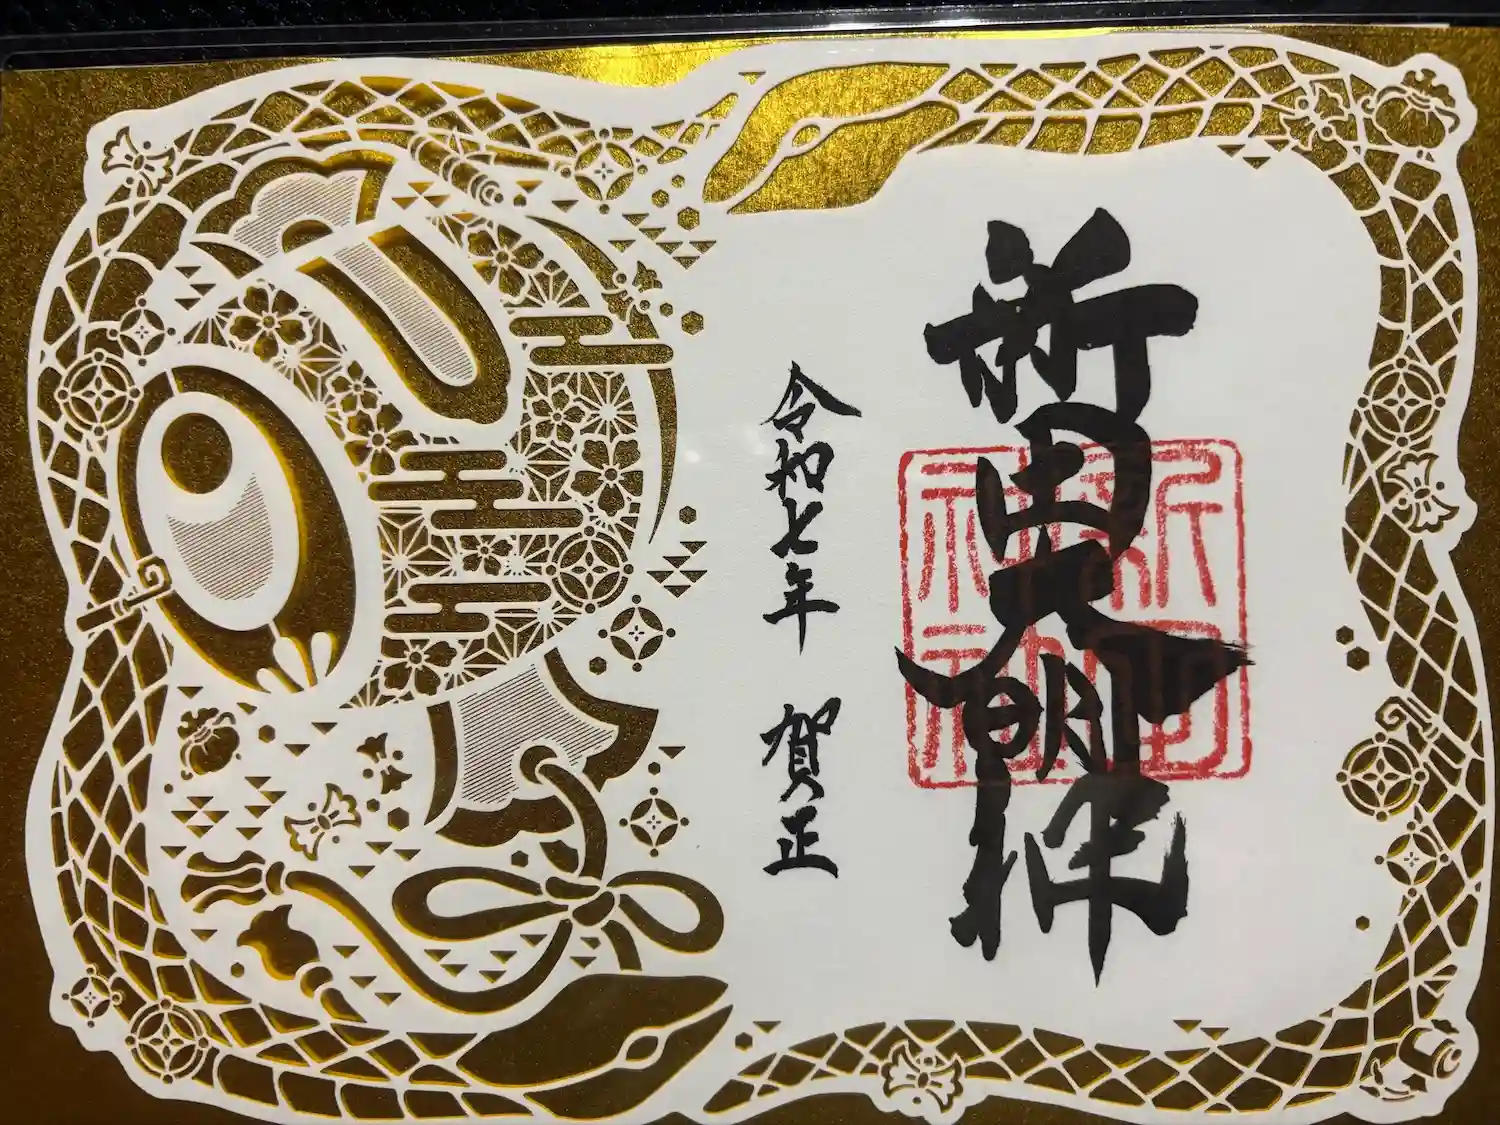 新田大明神
新田
神社
令和七年 賀正